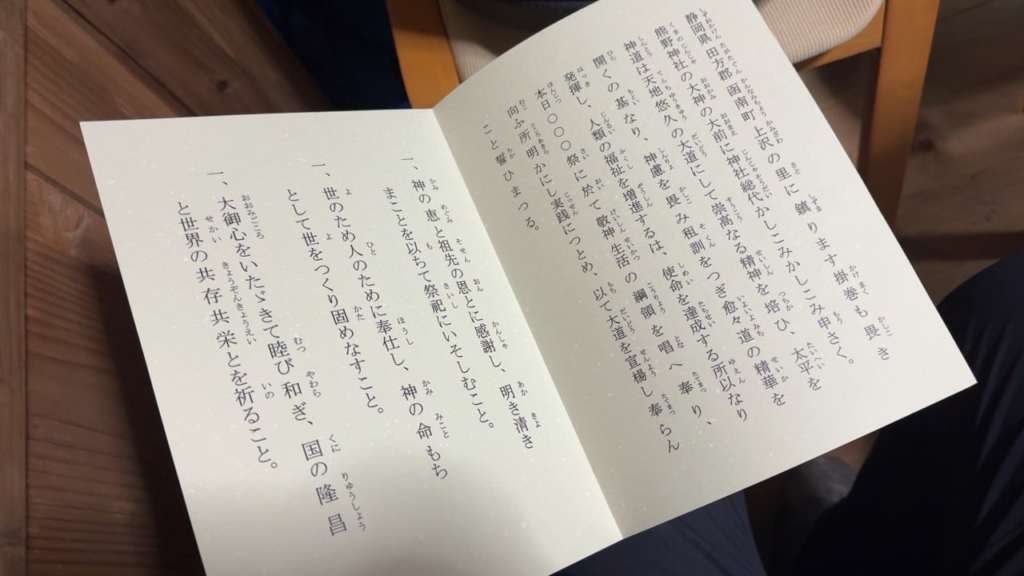 静岡県田方郡函南町上沢の里に鎮ります掛巻も畏き
熊野神社の大神の大前に神社総代かしこみかしこみ申さく。
神道は天地悠久の大道にして崇高なる精神を培ひ、太平を
開くの基なり、神慮を畏み祖訓をつぎ愈々道の精華を
発揮し、人類の福祉を増進するは、使命を達成する所以なり
本日〇〇〇祭に於て敬神生活の綱領を唱へ奉り、
向ふ所明かにし実践につとめ、以て大道を宣揚し奉らん
こと誓ひまつる。
一、神の恵と祖先の恩とに感謝し、明き清き
まことを以ちて祭祀にいそしむこと。
一、世のため人のために奉仕し、神の命もち
として世をつくり固めなすこと。
一、大御心をいたゞきて睦び和ぎ、国の隆昌
と世界の共存共栄とを祈ること。